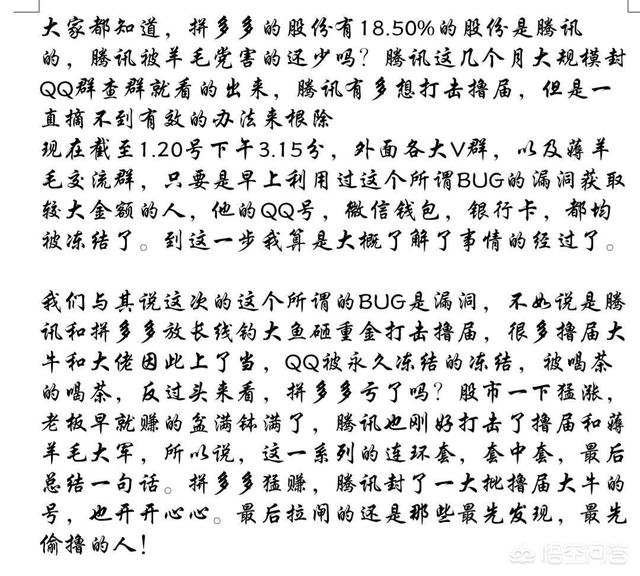 大家都知道，拼多多的股份有18.50%的股份是腾讯
的，腾讯被羊毛党害的还少吗？腾讯这几个月大规模封
QQ群查群就看的出来，腾讯有多想打击撸届，但是一
直摘不到有效的办法来根除
现在截至1.20号下午3.15分，外面各大V群，以及薅羊
毛交流群，只要是早上利用过这个所谓BUG的漏洞获取
较大金额的人，他的QQ号，微信钱包，银行卡，都均
被冻结了。到这一步我算是大概了解了事情的经过了。
我们与其说这次的这个所谓的BUG是漏洞，不如说是腾
讯和拼多多放长线钓大鱼砸重金打击撸届，很多撸届大
牛和大佬因此上了当，QQ被永久冻结的冻结，被喝茶
的喝茶，反过头来看，拼多多亏了吗？股市一下猛涨，
老板早就赚的盆满钵满了，腾讯也刚好打击了撸届和薅
羊毛大军，所以说，这一系列的连环套，套中套，最后
总结一句话。拼多多猛赚，腾讯封了一大批撸届大牛的
号，也开开心心。最后拉闸的还是那些最先发现，最先
偷撸的人！
悟空问答